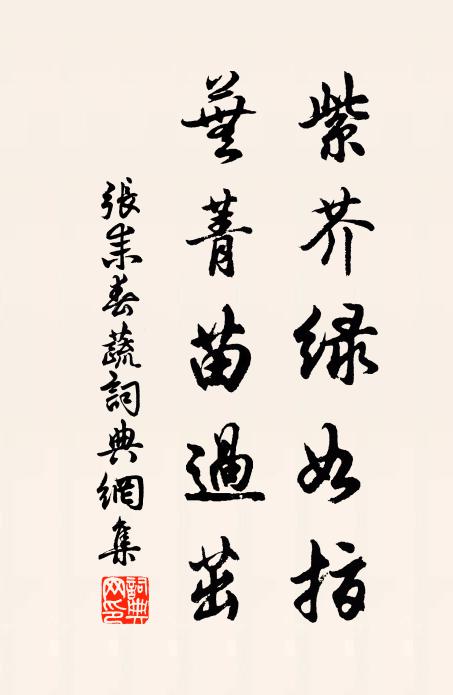 紫芥緑如
蕪菁苗過茁
張耒春蔬詞典網集
詞典網印